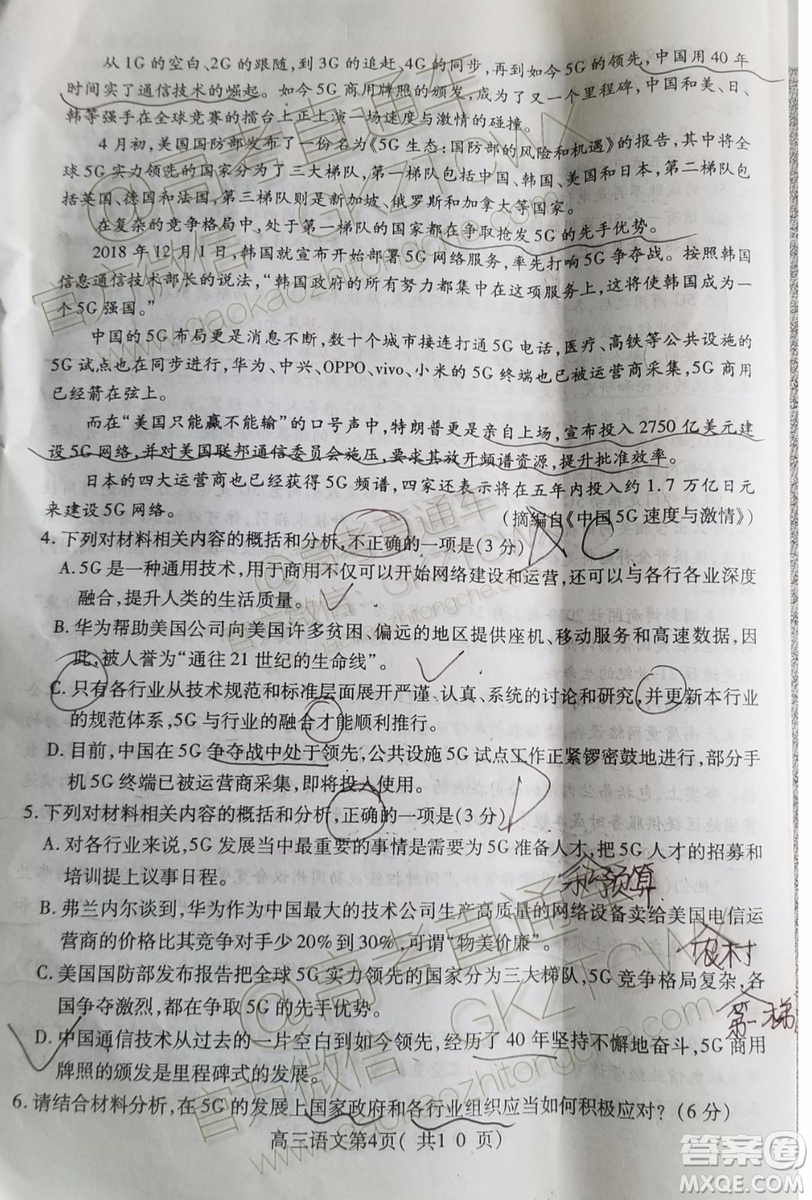 从1G的空白、2G的跟随,到3G的追赶、4G的同步,再到如今5G的领先,中国用40年
时间实了通信技术的崛起。如今5G商用牌照的颁发,成为了又一个里程碑,中国和美、日、
韩等强手在全球竞赛的擂台上正上演一场速度与激情的碰撞。
4月初,美国国防部发布了一份名为《5G生态:国防部的风险和机遇》的报告,其中,将
全球5G实力领先的国家分为了三大梯队,第一梯队包括中国、韩国、美国和日本,第二梯队包
括英国、德国和法国,第三梯队则是新加坡、俄罗斯和加拿大等国家。
在复杂的竞争格局中,处于第一梯队的国家都在争取抢发5G的先手优势。
2018年12月1日,韩国就宣布开始部署5G网络服务,率先打响5G争夺战。按照韩国
信息通信技术部长的说法,“韩国政府的所有努力都集中在这项服务上,这将使韩国成为一
个5G强国。”
中国的5G布局更是消息不断,数十个城市接连打通5G电话,医疗、高铁等公共设施的
5G试点也在同步进行,华为、中兴、OPPO、vivo、小米的5G终端也已被运营商采集,5G商用
已经箭在弦上。
而在“美国只能赢不能输”的口号声中,特朗普更是亲自上场,宣布投入2750亿美元建
设5G网络,并对美国联邦通信委员会施压,要求其放开频谱资源,提升批准效率。
日本的四大运营商也已经获得5G频谱,四家还表示将在五年内投入约1.7万亿日元
来建设5G网络。(摘编自《中国5G速度与激情》)
4.下列对材料相关内容的概括和分析,不正确的一项是(3分) C
A.5G是一种通用技术,用于商用不仅可以开始网络建设和运营,还可以与各行各业深度
融合,提升人类的生活质量。
B.华为帮助美国公司向美国许多贫困、偏远的地区提供座机、移动服务和高速数据,因
此,被人誉为“通往21世纪的生命线”。
C.只有各行业从技术规范和标准层面展开严谨、认真、系统的讨论和研究,并更新本行业
的规范体系,5G与行业的融合才能顺利推行。
D.目前,中国在5G争夺战中处于领先,公共设施5G试点工作正紧锣密鼓地进行,部分手
机5G终端已被运营商采集,即将投入使用。
5.下列对材料相关内容的概括和分析,正确的一项是(3分) D
A.对各行业来说,5G发展当中最重要的事情是需要为5G准备人才,把5G人才的招募和
培训提上议事日程。
预算
B.弗兰内尔谈到,华为作为中国最大的技术公司生产高质量的网络设备卖给美国电信运
营商的价格比其竞争对手少20%到30%,可谓“物美价廉”。
农村
C.美国国防部发布报告把全球5G实力领先的国家分为三大梯队,5G竞争格局复杂,各
国争夺激烈,都在争取5G的先手优势。
第一梯
D.中国通信技术从过去的一片空白到如今领先,经历了40年坚持不懈地奋斗,5G商用
牌照的颁发是里程碑式的发展。
6.请结合材料分析,在5G的发展上国家政府和各行业组织应当如何积极应对?(6分)
高三语文第4页( 共1 0 页)
@高考直通车
官方微信:GKZTCWX
www.gaokaozhitongche.com
答案圈
MXQE.COM